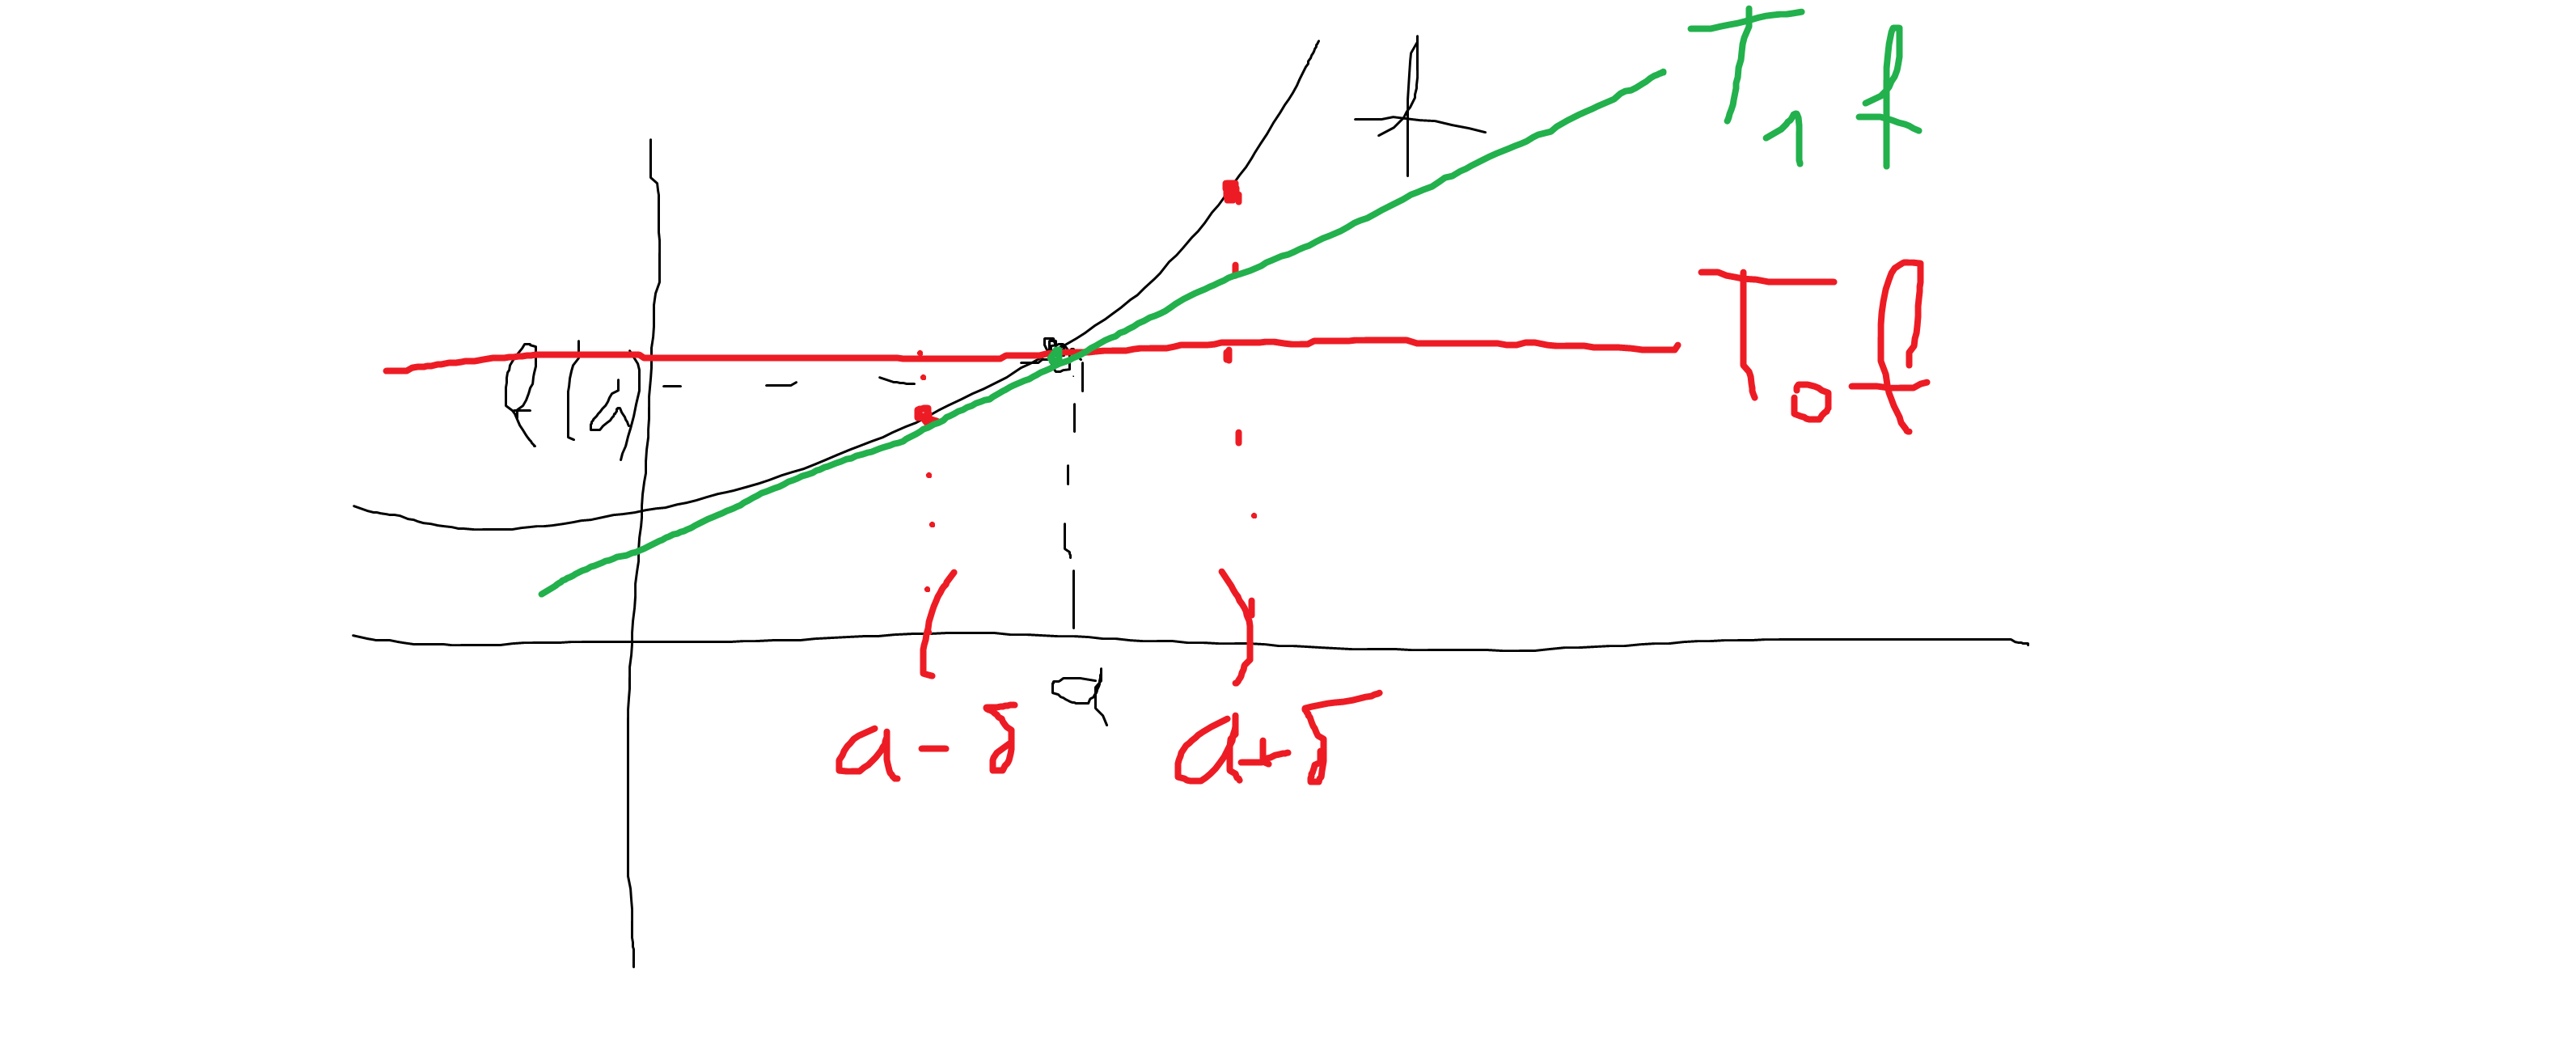 f
T₁f
T₀f
f(a)
a
a-δ
a+δ